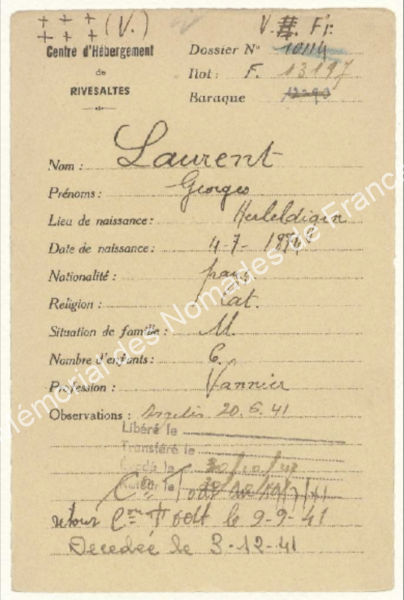 + + + (V.) V. Fr.
+ + +
Centre d'Hébergement
de
RIVESALTES
Dossier N° 10114
Ilot : F. 13197
Baraque
Nom : Laurent
Prénoms : Georges
Lieu de naissance :
Date de naissance : 4-7-
Nationalité : franç
Religion : Cat.
Situation de famille : M.
Nombre d'enfants : 6.
Profession : Vannier
Observations : Argelès 20.6.41
Libéré le
Transféré le
retour le 9-9-41
Decedée le 3-12-41
Mémorial des Nomades de France